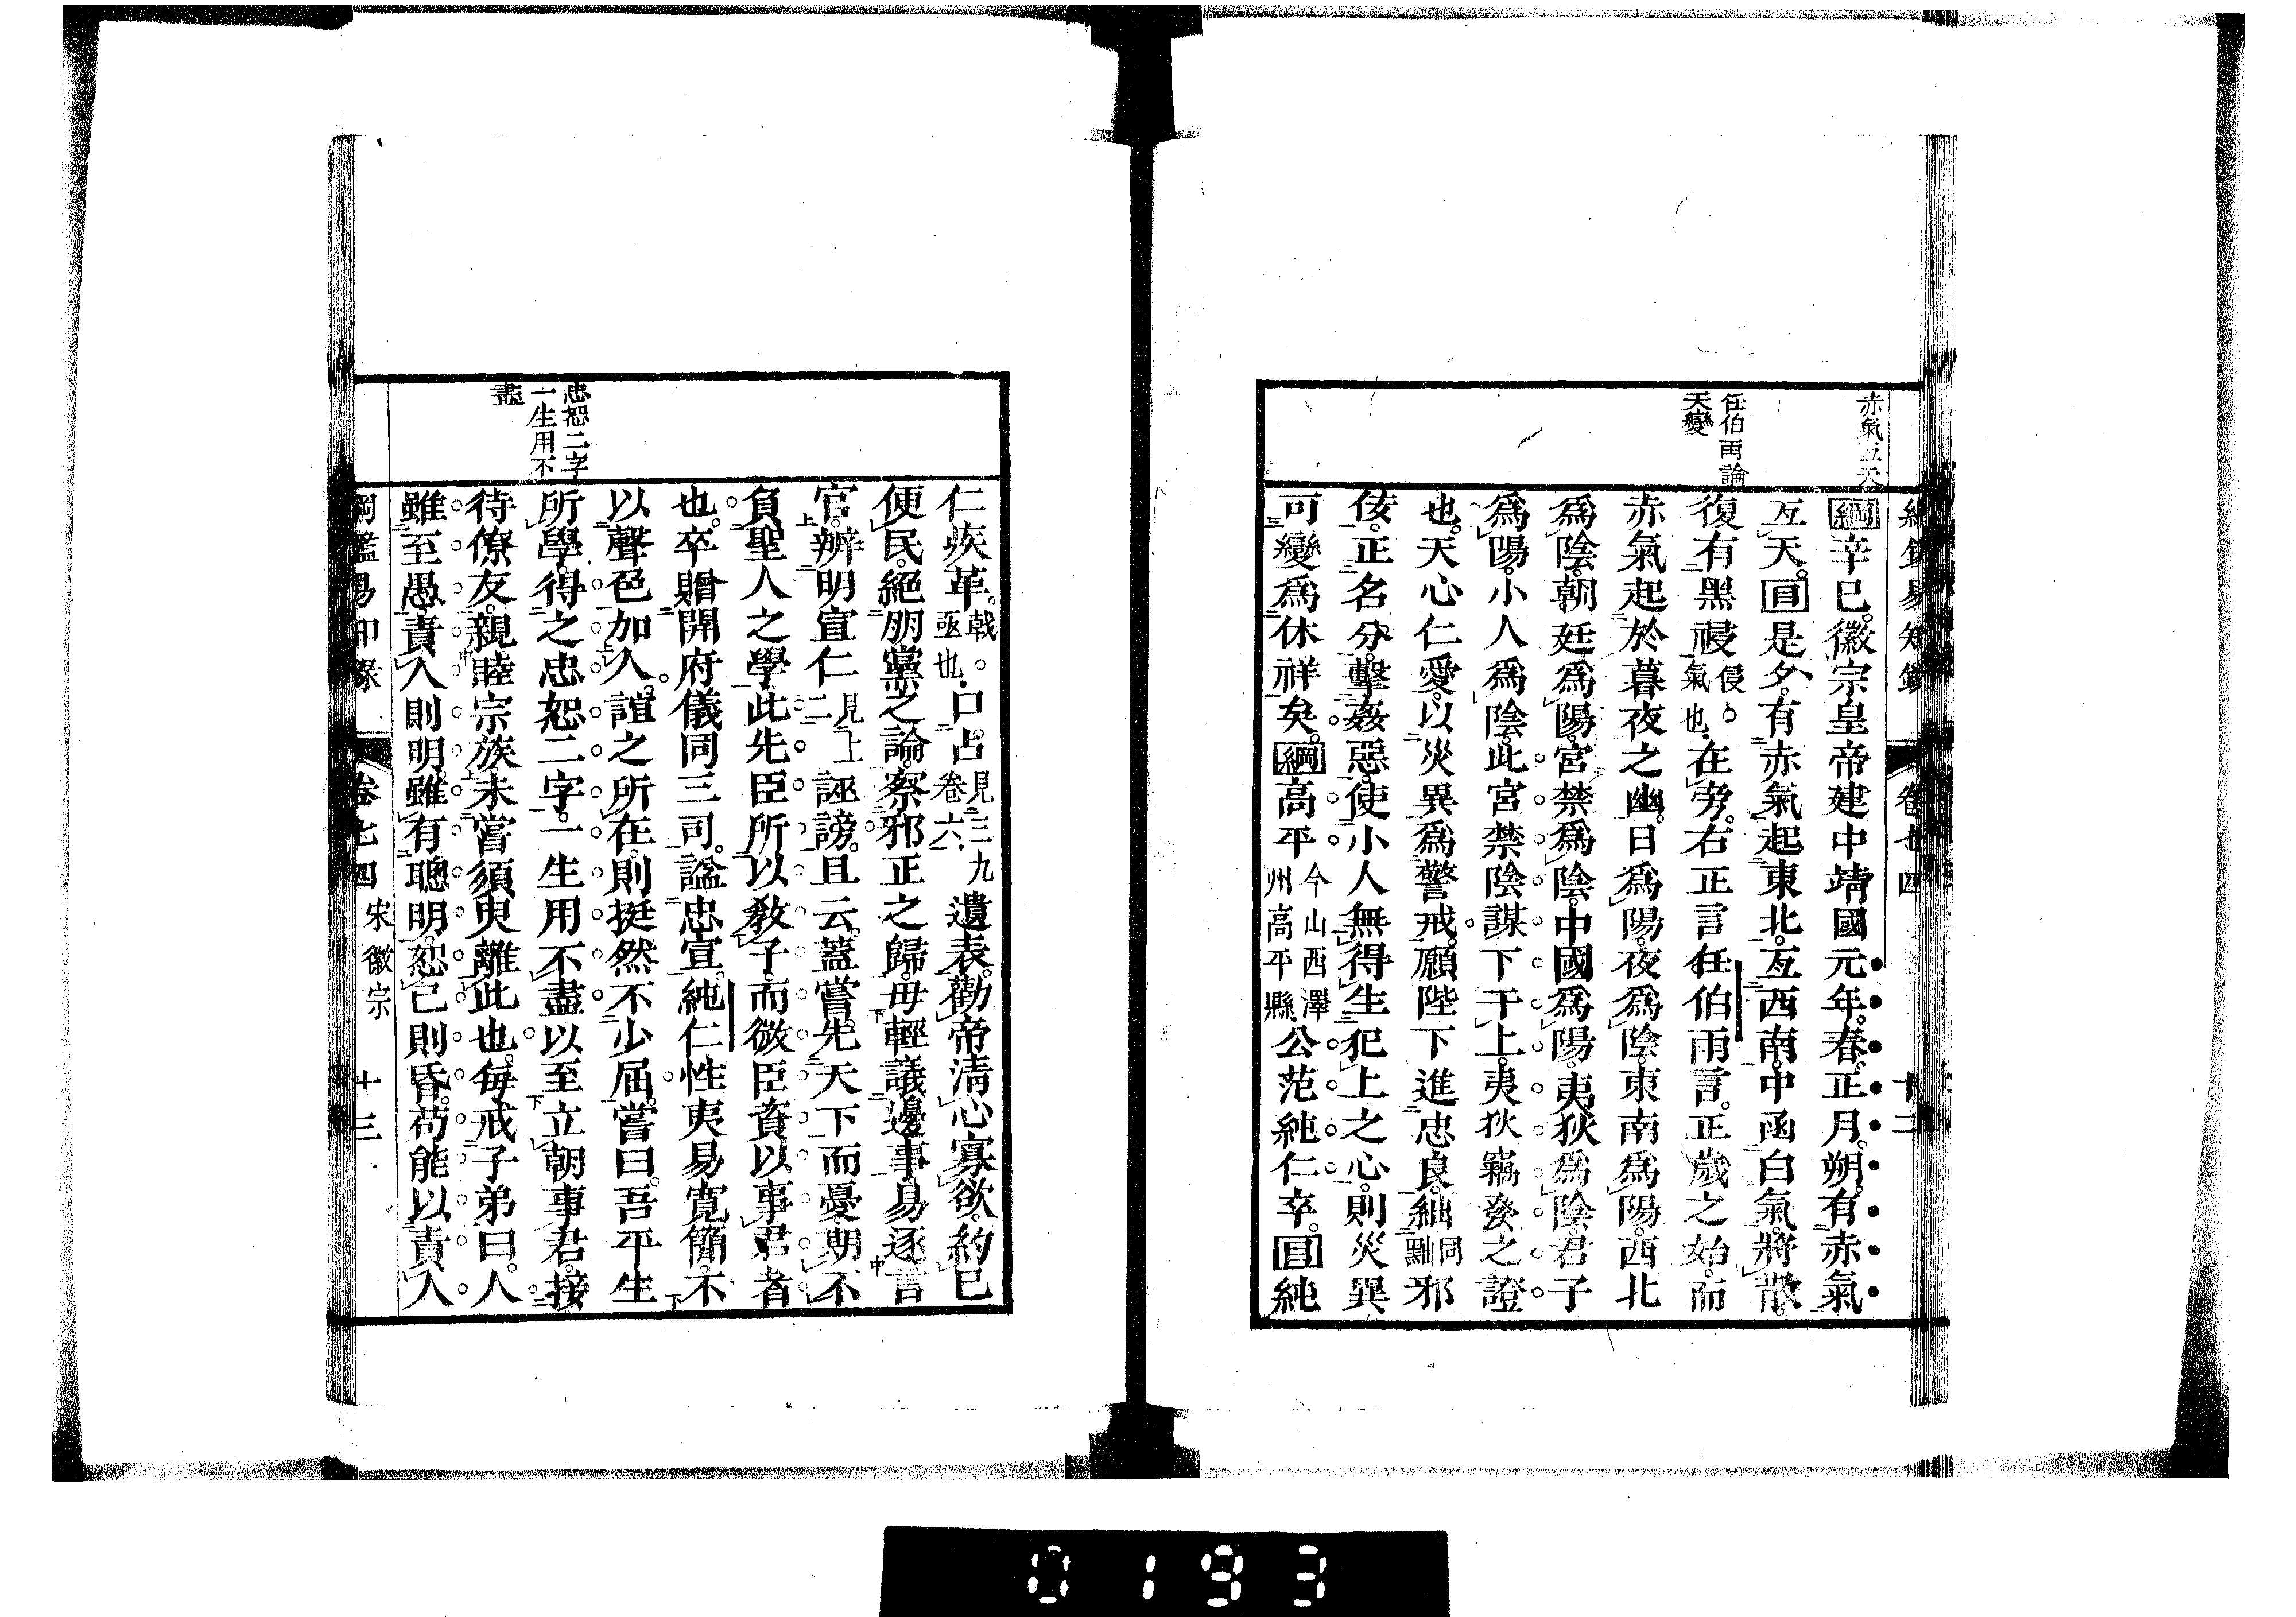 赤氣亙天
任伯雨論
天變
綱辛巳。徽宗皇帝建中靖國元年。春。正月。朔。有赤氣
亙天。目是夕。有赤氣起東北。亙西南。中函白氣。將散。
復有黑祲侵。氣也。在旁。右正言任伯雨言。正歲之始。而
赤氣起於暮夜之幽。日爲陽。夜爲陰。東南爲陽。西北
爲陰。朝廷爲陽。宮禁爲陰。中國爲陽。夷狄爲陰。君子
爲陽。小人爲陰。此宮禁陰謀下干上。夷狄竊發之證
也。天心仁愛。以災異爲警戒。願陛下進忠良。絀同黜邪
佞。正名分。擊姦惡。使小人無得生犯上之心。則災異
可變爲休祥矣。綱高平今山西澤州高平縣公范純仁卒。目純
忠恕二字
一生用不
盡
仁疾革。戟。亟也。口占見三九卷六遺表。勸帝清心寡欲。約已
便民。絕朋黨之論。察邪正之歸。毋輕議邊事。易逐言
官。辨明宣仁見上二誣謗。且云。蓋嘗。先天下而憂。期不
負聖人之學。此先臣所以教子。而微臣資以事君者
也。卒贈開府儀同三司。諡忠宣。純仁性夷易寬簡。不
以聲色加人。誼之所在。則挺然不少屈。嘗曰。吾平生
所學。得之忠恕二字。一生用不盡以至立朝事君。接
待僚友。親睦宗族。未嘗須臾離此也。每戒子弟曰。人
雖至愚。責人則明。雖有聰明。恕已則昏。苟能以責人
卷七四 宋徽宗 十三